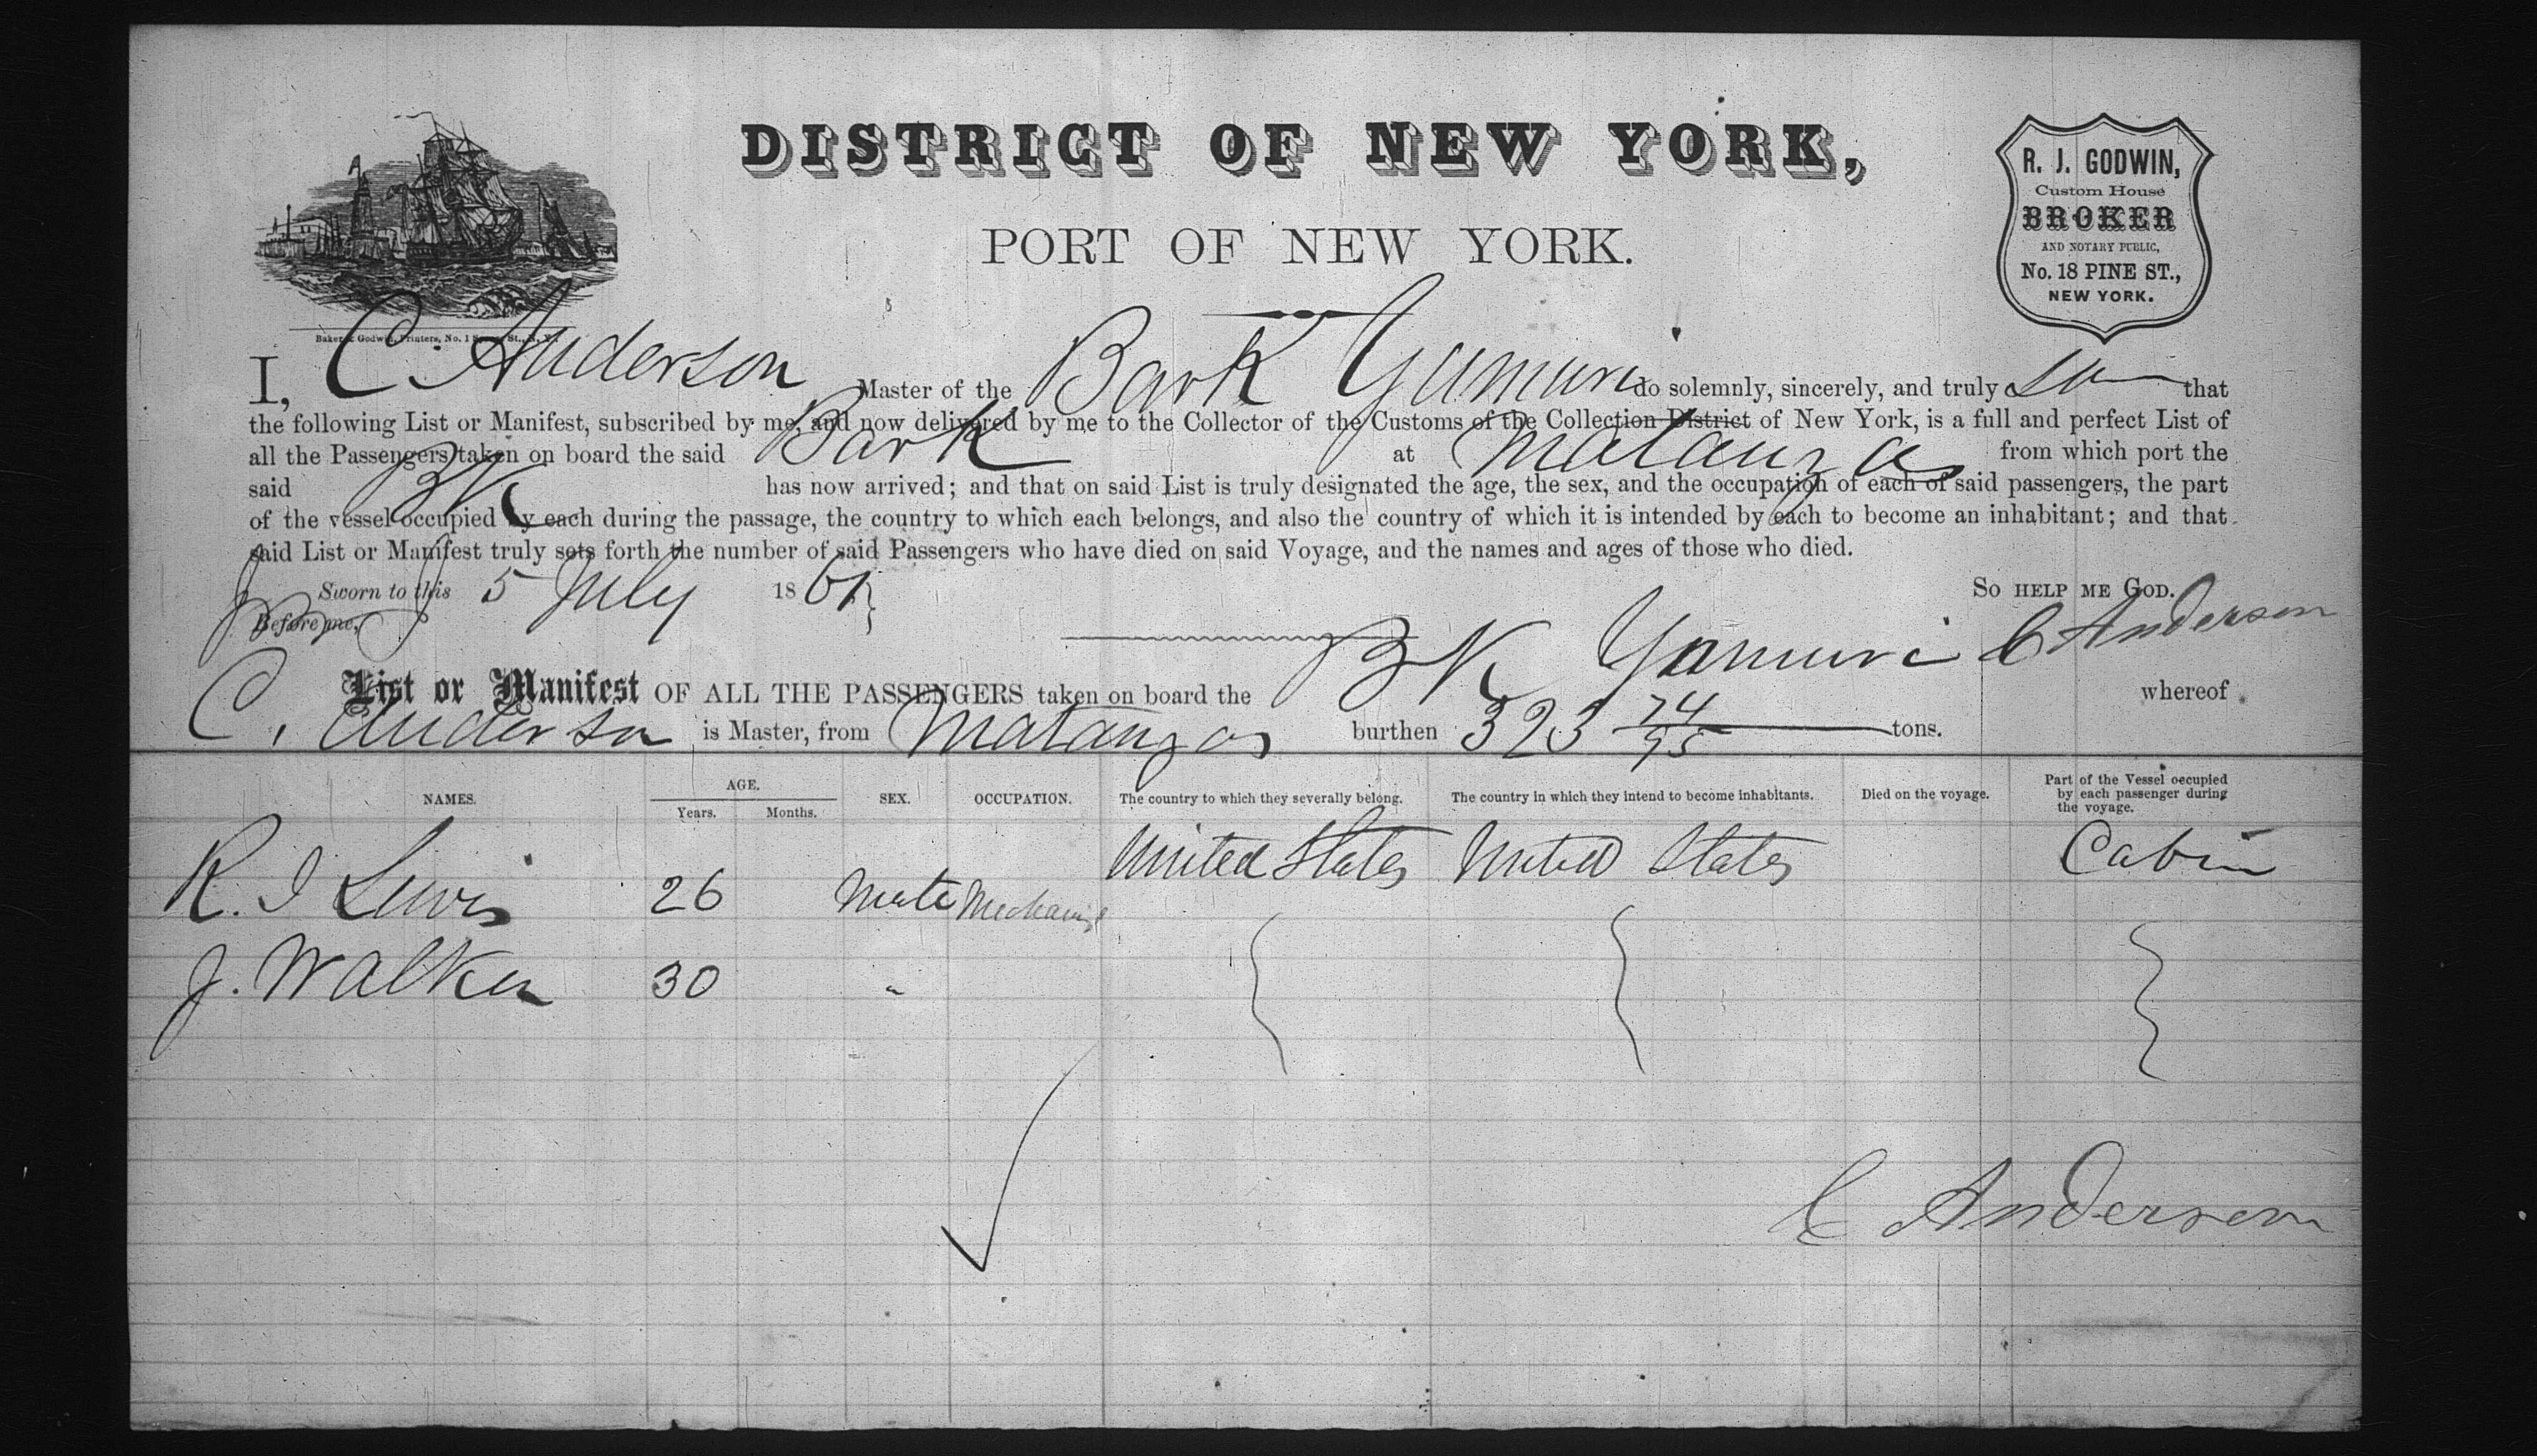 DISTRICT OF NEW YORK,
PORT OF NEW YORK.
R. J. GODWIN,
Custom House
BROKER
AND NOTARY PUBLIC,
No. 18 PINE ST.,
NEW YORK.
Baker & Godwin, Printers, No. 1 Spruce St., N. Y.
I, C. Anderson Master of the Bark Yumuri do solemnly, sincerely, and truly that
the following List or Manifest, subscribed by me, and now delivered by me to the Collector of the Customs of the Collection District of New York, is a full and perfect List of
all the Passengers taken on board the said Bark at Matanzas from which port the
said Bk has now arrived; and that on said List is truly designated the age, the sex, and the occupation of each of said passengers, the part
of the vessel occupied by each during the passage, the country to which each belongs, and also the country of which it is intended by each to become an inhabitant; and that
said List or Manifest truly sets forth the number of said Passengers who have died on said Voyage, and the names and ages of those who died.
Sworn to this 5 July 1861 So HELP ME GOD.
Before me, C Anderson
List or Manifest OF ALL THE PASSENGERS taken on board the Bk Yumuri whereof
C. Anderson is Master, from Matanzas burthen 323 74/95 tons.
NAMES. AGE. Years. Months. SEX. OCCUPATION. The country to which they severally belong. The country in which they intend to become inhabitants. Died on the voyage. Part of the Vessel occupied by each passenger during the voyage.
R. I Lewis 26 Male Mechanic United States United States Cabin
J. Walker 30 "
C Anderson